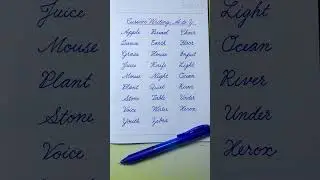 Cursive Writing A to Z
Apple Bread Chair
Dance Earth Floor
Grass House Input
Juice Knife Light
Mouse Night Ocean
Plant Quiet River
Stone Table Under
Voice Water Xerox
Youth Zebra
Juice
Mouse
Plant
Stone
Voice
Light
Ocean
River
Under
Xerox